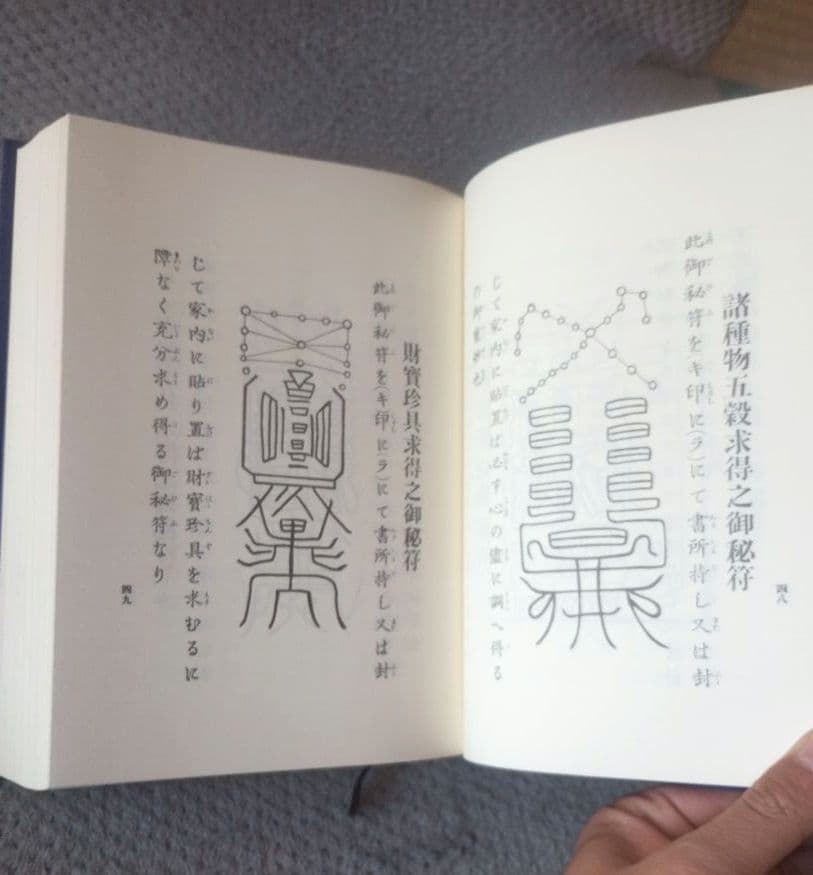 四八
諸種物五穀求得之御秘符
此御秘符を(キ印に(ラ)にて書所持し又は封
じて家内に貼置ば必す心の に調へ得る
の御
財寶珍具求得之御秘符
此御秘符を(キ印に(ラ)にて書所持し又は封
じて家内に貼り置ば財寶珍具を求むるに
障なく充分求め得る御秘符なり
四九